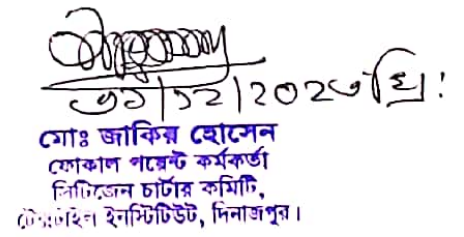 ৩১/১২/২০২৩ খ্রি:
মোঃ জাকির হোসেন
ফোকাল পয়েন্ট কর্মকর্তা
সিটিজেন চার্টার কমিটি,
টেক্সটাইল ইনস্টিটিউট, দিনাজপুর।